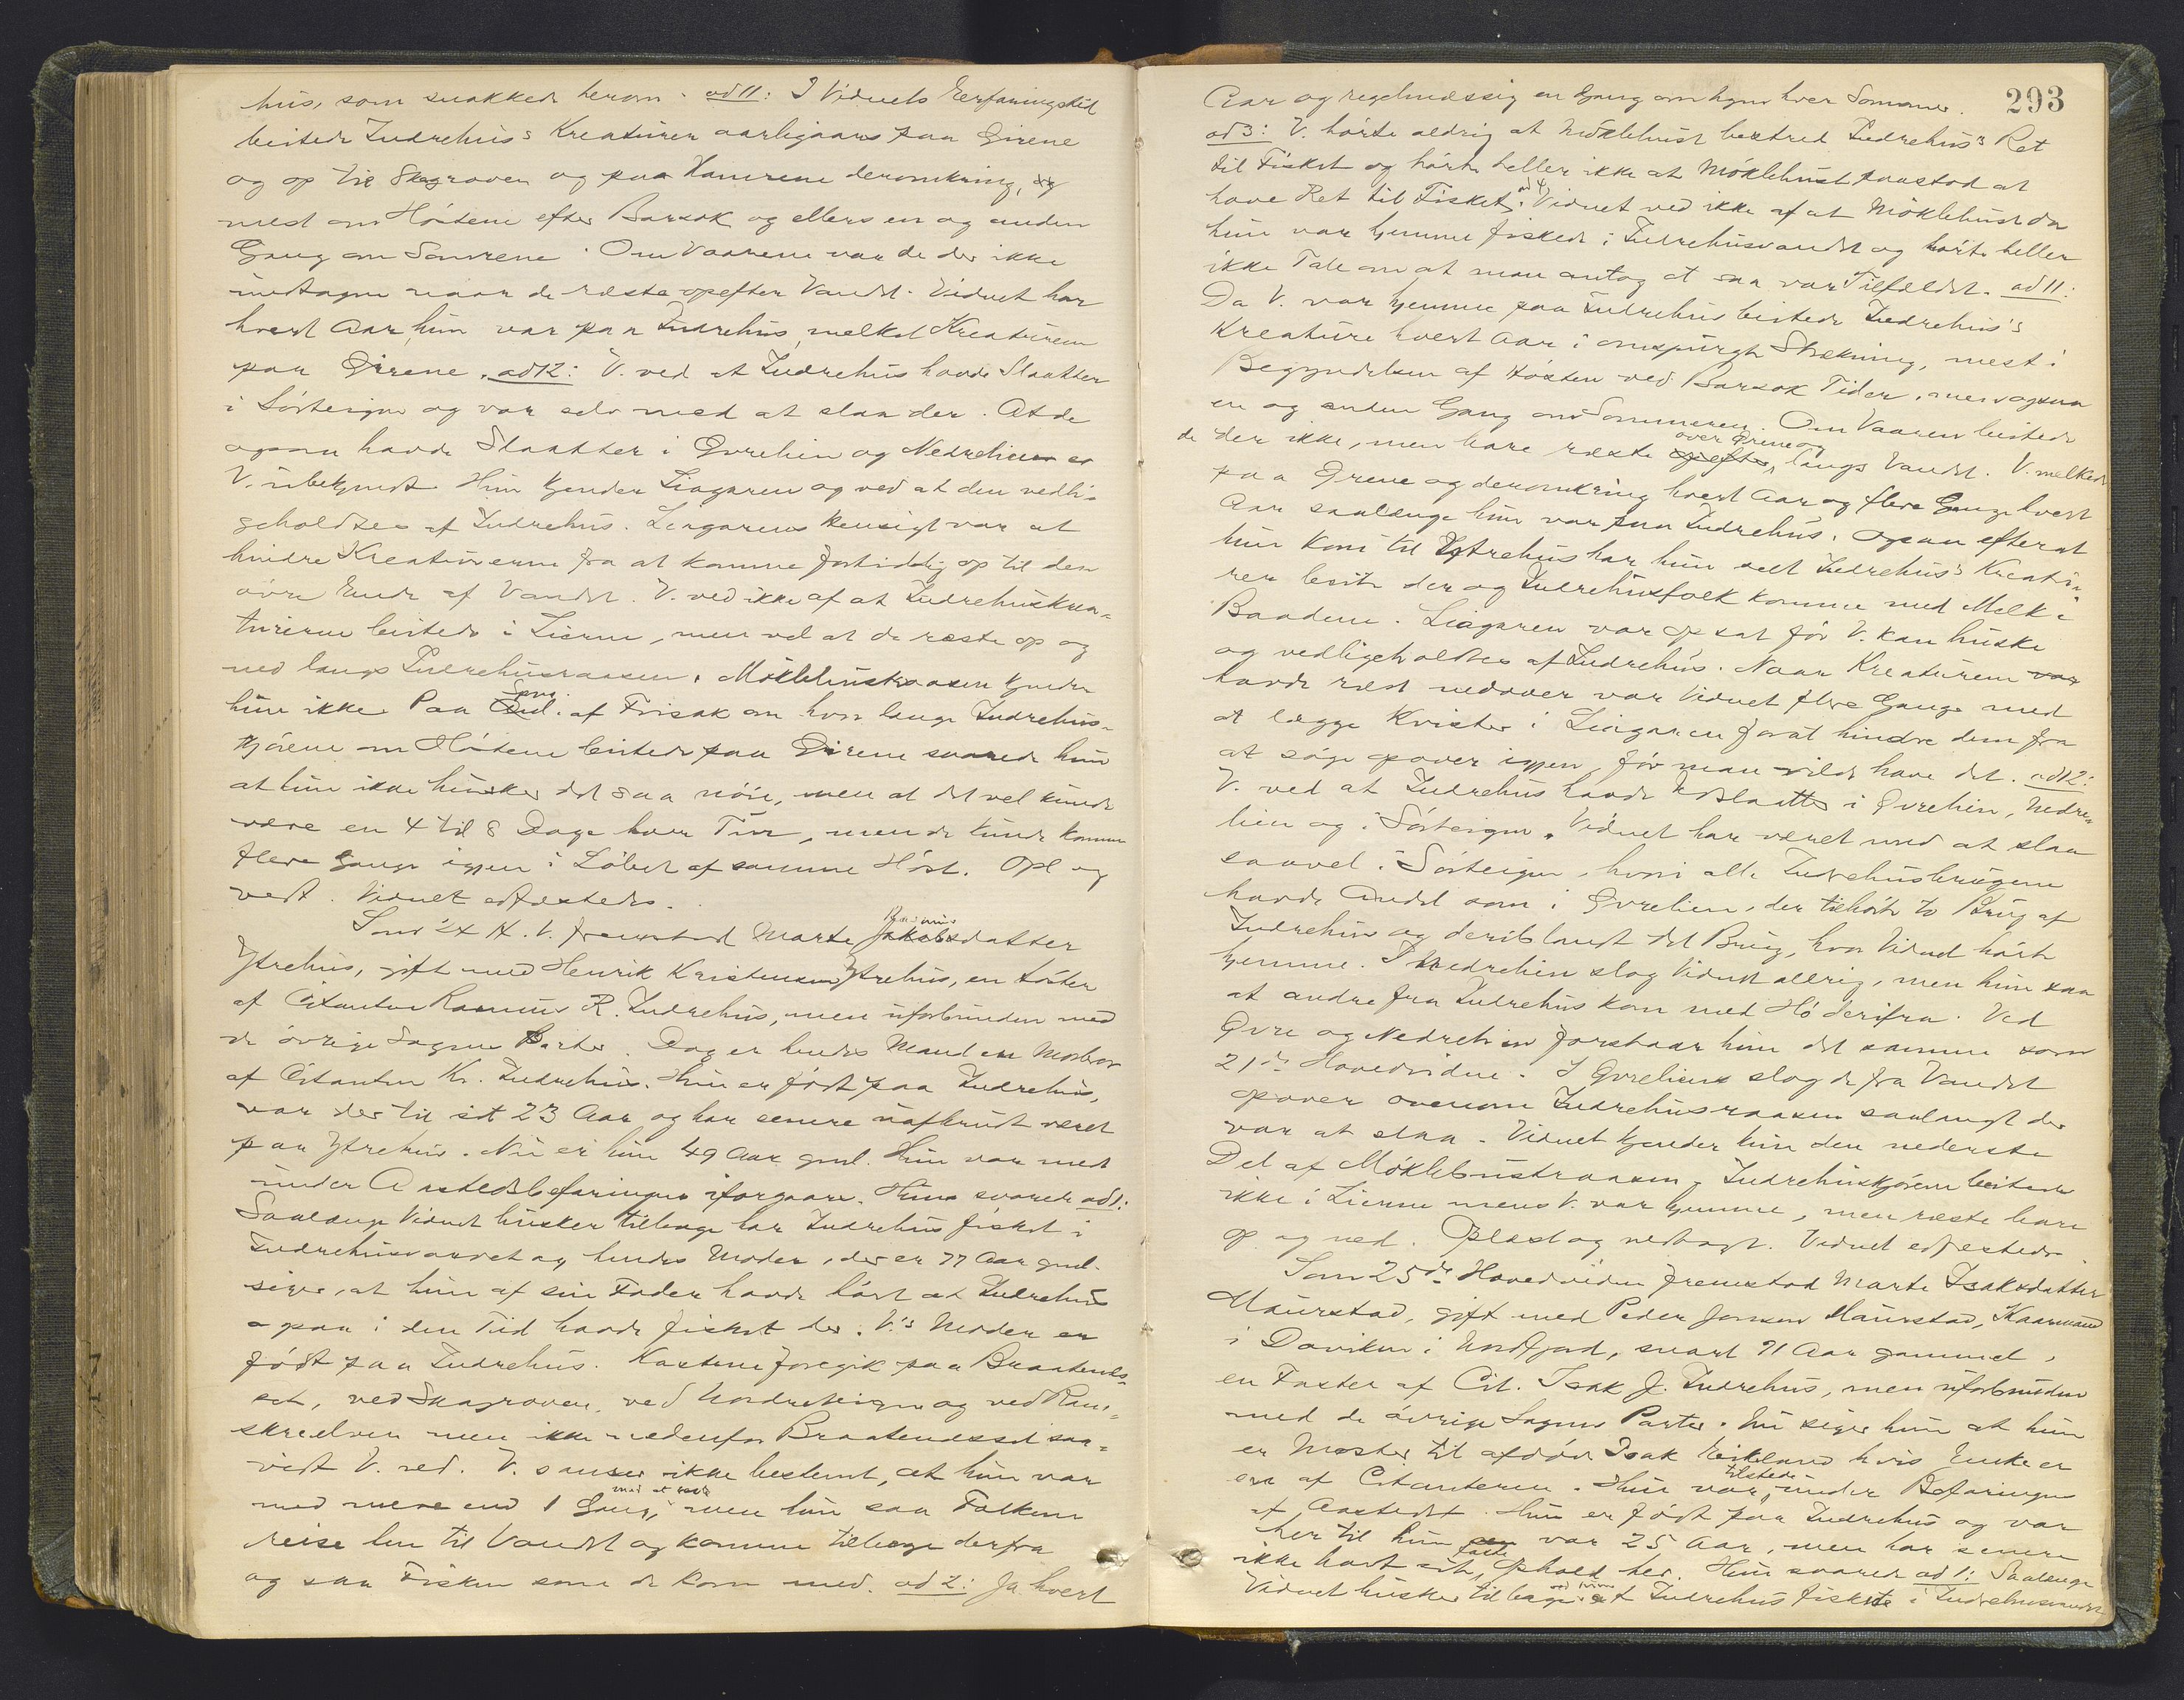 hus, som snakkede herom. ad 11: I Vidnets Erfaringstid
beitede Indrehus's Kreaturer aarligaars paa Ørene
og op til Skagroven og paa Hamrene deromkring,
mest om Høstene efter Barsok og ellers en og anden
Gang om Somrene. Om Vaarene var de der ikke
undtagen naar de ræste opefter Vandet. Vidnet har
hvert Aar, hun var paa Indrehus, melket Kreaturene
paa Ørene. ad 12: V. ved at Indrehus havde Slaatter
i Sørteigen og var selv med at slaa der. At de
ogsaa havde Slaatter i Øvrelien og Nedrelien er
V. ubekjendt. Hun kjender Liagaren og ved at den vedli-
geholdtes af Indrehus. Liagarens Hensigt var at
hindre Kreaturerne fra at komme fortidlig op til den
øvre Ende af Vandet. V. ved ikke af at Indrehuskrea-
turerne beitede i Lierne, men ved at de ræste op og
ned langs Indrehusraasen. Møklebustraasen kjender
hun ikke. Paa Spm. af Frisak om hvor lange Indrehus-
kjørene om Høstene beitede paa Ørene svarede hun
at hun ikke husker det saa nøie, men at det vel kunde
være en 4 til 8 Dage hver Tur, men de kunde komme
flere Gange igjen i Løbet af samme Høst. Opl. og
vedt. Vidnet edfæstedes.
Som 24 H. V. fremstod Marte Rasmusdatter
Ytrehus, gift med Henrik Kristensen Ytrehus, en Søster
af Citanten Rasmus R. Indrehus, men uforbunden med
de øvrige Sagens Parter. Dog er hendes Mand en Morbror
af Citanten Kr. Indrehus. Hun er født paa Indrehus,
var der til sit 23 Aar og har senere uafbrudt været
paa Ytrehus. Nu er hun 49 Aar gml. Hun var med
under Aastedsbefaringen iforgaars. Hun svarede ad 1:
Saalænge Vidnet husker tilbage har Indrehus fisket i
Indrehusvandet og hendes Moder, der er 77 Aar gml.
siger, at hun af sin Fader havde hørt at Indrehus
ogsaa i den Tid havde fisket der. V.'s Moder er
født paa Indrehus. Kastene foregik paa Braatenes-
set, ved Skagroven, ved Nordreteigen og ved Ram-
skredven men ikke nedenfor Braatenesset saa-
vidt V. ved. V. sanser ikke bestemt, at hun var
med mere end 1 Gang, med at kaste men hun saa Folkene
reise hen til Vandet og komme tilbage derfra
og saa Fisken som de kom med. ad 2: Ja hvert
293
Aar og regelmæssig en Gang om hver Sommer.
ad 3: V. hørte aldrig at Møklebust bestred Indrehus's Ret
til Fisket og hørte heller ikke at Møklebust paastod at
have Ret til Fisket. ad 4: Vidnet ved ikke af at Møklebust da
hun var hjemme fiskede i Indrehusvandet og hørte heller
ikke Tale om at man antog at saa var Tilfældet. ad 11:
Da V. var hjemme paa Indrehus beitede Indrehus's
Kreature hvert Aar i omspurgte Strækning, mest i
Begyndelsen af Høsten ved Barsok Tider, men ogsaa
en og anden Gang om Sommeren. Om Vaaren beitede
de der ikke, men bare ræste over Ørene og langs Vandet. V. melkede
paa Ørene og deromkring hvert Aar og flere Gange hvert
Aar saalænge hun var paa Indrehus. Ogsaa efterat
hun kom til Ytrehus har hun seet Indrehus's Kreatu-
rer beite der og Indrehusfolk komme med Melk i
Baadene. Liagaren var opsat før V. kan huske
og vedligeholdtes af Indrehus. Naar Kreaturene
havde ræst nedover var Vidnet flere Gange med
at lægge Kvister i Liagaren forat hindre dem fra
at søge opover igjen, før man vilde have det. ad 12:
V. ved at Indrehus havde Slaatter i Øvrelien, Nedre-
lien og i Sørteigen. Vidnet har været med at slaa
saavel i Sørteigen, hvori alle Indrehusbrugene
havde Andel som i Øvrelien, der tilhørte to Brug af
Indrehus og deriblandt det Brug, hvor Vidnet hørte
hjemme. I Nedrelien slog Vidnet aldrig, men hun saa
at andre fra Indrehus kom med Hø derifra. Ved
Øvre og Nedrelien forstaar hun det samme som
21de Hovedvidne. I Øvrelien slog de fra Vandet
opover ovenom Indrehusraasen saalangt der
var at slaa. Vidnet kjender kun den nederste
Del af Møklebustraasen. Indrehuskjørene beitede
ikke i Lierne mens V. var hjemme, men ræste bare
op og ned. Oplæst og vedtaget. Vidnet edfæstedes.
Som 25de Hovedvidne fremstod Marte Isaksdatter
Maurstad, gift med Peder Jonsen Maurstad, Kaarmand
i Daviken i Nordfjord, snart 71 Aar gammel,
en Faster af Cit. Isak J. Indrehus, men uforbunden
med de øvrige Sagens Parter. Nu siger hun at hun
er Moster til afdøde Isak Eikeland hvis Enke er
en af Citanterne. Hun var tilstede under Befaringen
af Aastedet. Hun er født paa Indrehus og var
her til hun var 25 Aar, men har senere
ikke havt sit faste Ophold her. Hun svarede ad 1: Saalænge
Vidnet husker tilbage at Indrehus fiskede i Indrehusvandet